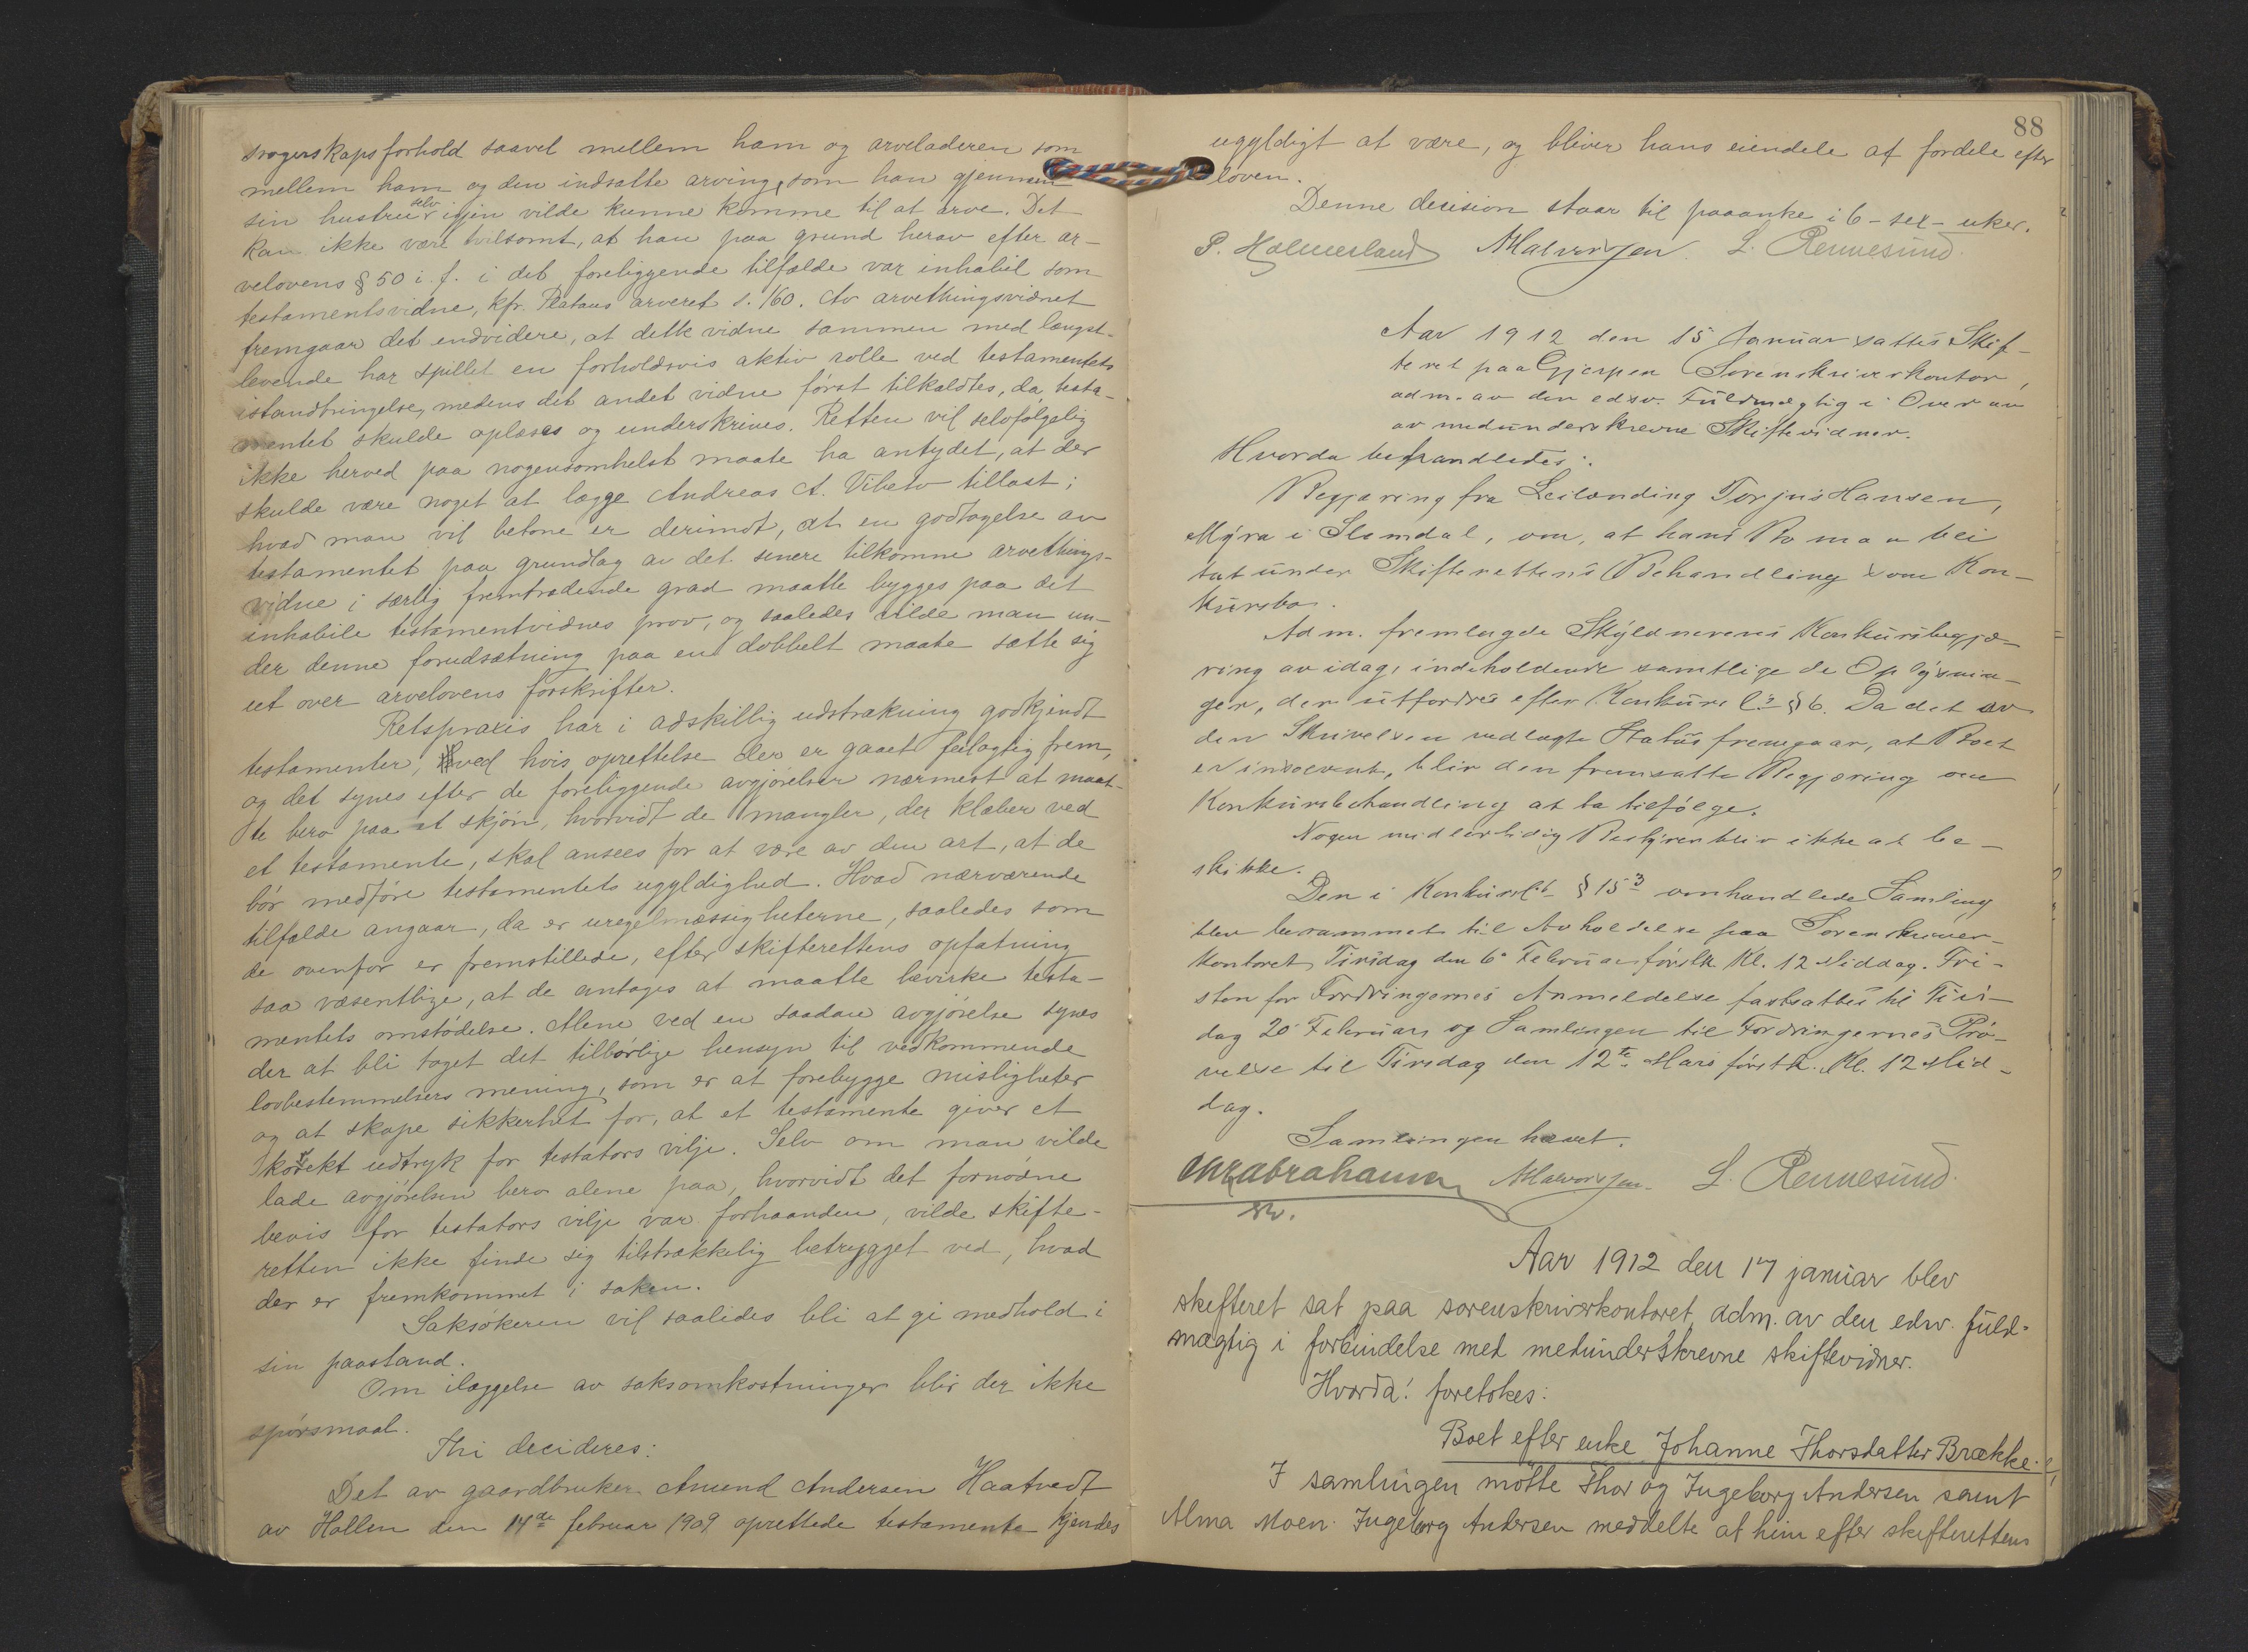 svogerskapsforhold saavel mellem ham og arveladeren som
mellem ham og den indsatte arving, som han gjennem
sin hustru selv igjen vilde kunne komme til at arve. Det
kan ikke være tvilsomt, at han paa grund herav efter ar-
velovens § 50 i. f. i det foreliggende tilfælde var inhabil som
testamentsvidne, kfr. Platous arveret s. 160. Av arvethingsvidnet
fremgaar det endvidere, at dette vidne sammen med længst-
levende har spillet en forholdsvis aktiv rolle ved testamentets
istandbringelse, medens det andet vidne først tilkaldtes, da testa-
mentet skulde oplæses og underskrives. Retten vil selvfølgelig
ikke herved paa nogensomhelst maate ha antydet, at der
skulde være noget at lægge Andreas A. Vibeto tillast;
hvad man vil betone er derimot, at en godtagelse av
testamentet paa grundlag av det senere tilkomne arvethings-
vidne i særlig fremtrædende grad maatte bygges paa det
inhabile testamentvidnes prov, og saaledes vilde man un-
der denne forudsætning paa en dobbelt maate sætte sig
ut over arvelovens forskrifter.
Retspraxis har i adskillig udstrækning godkjendt
testamenter, ved hvis oprettelse der er gaaet feilagtig frem,
og det synes efter de foreliggende avgjørelser nærmest at maat-
te bero paa et skjøn, hvorvidt de mangler, der klæber ved
et testamente, skal ansees for at være av den art, at de
bør medføre testamentets ugyldighed. Hvad nærværende
tilfælde angaar, da er uregelmæssigheterne, saaledes som
de ovenfor er fremstillede, efter skifterettens opfatning
saa væsentlige, at de antages at maatte bevirke testa-
mentets omstødelse. Alene ved en saadan avgjørelse synes
der at bli taget det tilbørlige hensyn til vedkommende
lovbestemmelsers mening, som er at forebygge misligheter
og at skape sikkerhet for, at et testamente giver et
korrekt udtryk for testators vilje. Selv om man vilde
lade avgjørelsen bero alene paa, hvorvidt det fornødne
bevis for testators vilje var forhaanden, vilde skifte-
retten ikke finde sig tilstrækkelig betrygget ved, hvad
der er fremkommet i saken.
Saksøkeren vil saaledes bli at gi medhold i
sin paastand.
Om ilæggelse av saksomkostninger blir der ikke
spørsmaal.
Thi decideres:
Det av gaardbruker Amund Andersen Haatvedt
av Hollen den 14de februar 1909 oprettede testamente kjendes
88
ugyldigt at være, og bliver hans eiendele at fordele efter
loven.
Denne decision staar til paaanke i 6 - sex - uker.
P. Holmesland Halvorsen L. Rennesund.
Aar 1912 den 15 Januar sattes Skif-
teret paa Gjerpen Sorenskriverkontor,
adm. av den edsv. Fuldmægtig i Overvær
av medunderskrevne Skiftevidner.
Hvorda behandledes:
Begjæring fra Leilænding Torjus Hansen,
Myra i Slemdal, om, at hans Bo maa bli
tat under Skifterettens Behandling som Kon-
kursbo.
Adm. fremlagde Skyldnerens Konkursbegjæ-
ring av idag, indeholdende samtlige de Oplysnin-
ger, der utfordres efter Konkursl's § 6. Da det av
den Skrivelsen vedlagte Status fremgaar, at Boet
er insolvent, blir den fremsatte Begjæring om
Konkursbehandling at ta tilfølge.
Nogen midlertidig Bestyrer blir ikke at be-
skikke.
Den i Konkursl's § 15 3 omhandlede Samling
blev berammet til Avholdelse paa Sorenskriver-
kontoret Tirsdag den 6' Februar førstk. Kl. 12 Middag. Fri-
sten for Fordringernes Anmeldelse fastsattes til Tirs-
dag 20' Februar og Samlingen til Fordringernes Prø-
velse til Tirsdag den 12te Mars førstk. Kl. 12 Mid-
dag.
Samlingen hævet.
Chr Abrahamsen Halvorsen L. Rennesund.
Aar 1912 den 17 januar blev
skifteret sat paa sorenskriverkontoret, adm. av den edsv. fuld-
mægtig i forbindelse med medunderskrevne skiftevidner.
Hvorda! foretokes:
Boet efter enke Johanne Thorsdatter Brække.
I samlingen møtte Thor og Ingeborg Andersen samt
Alma Moen. Ingeborg Andersen meddelte at hun efter skifterettens